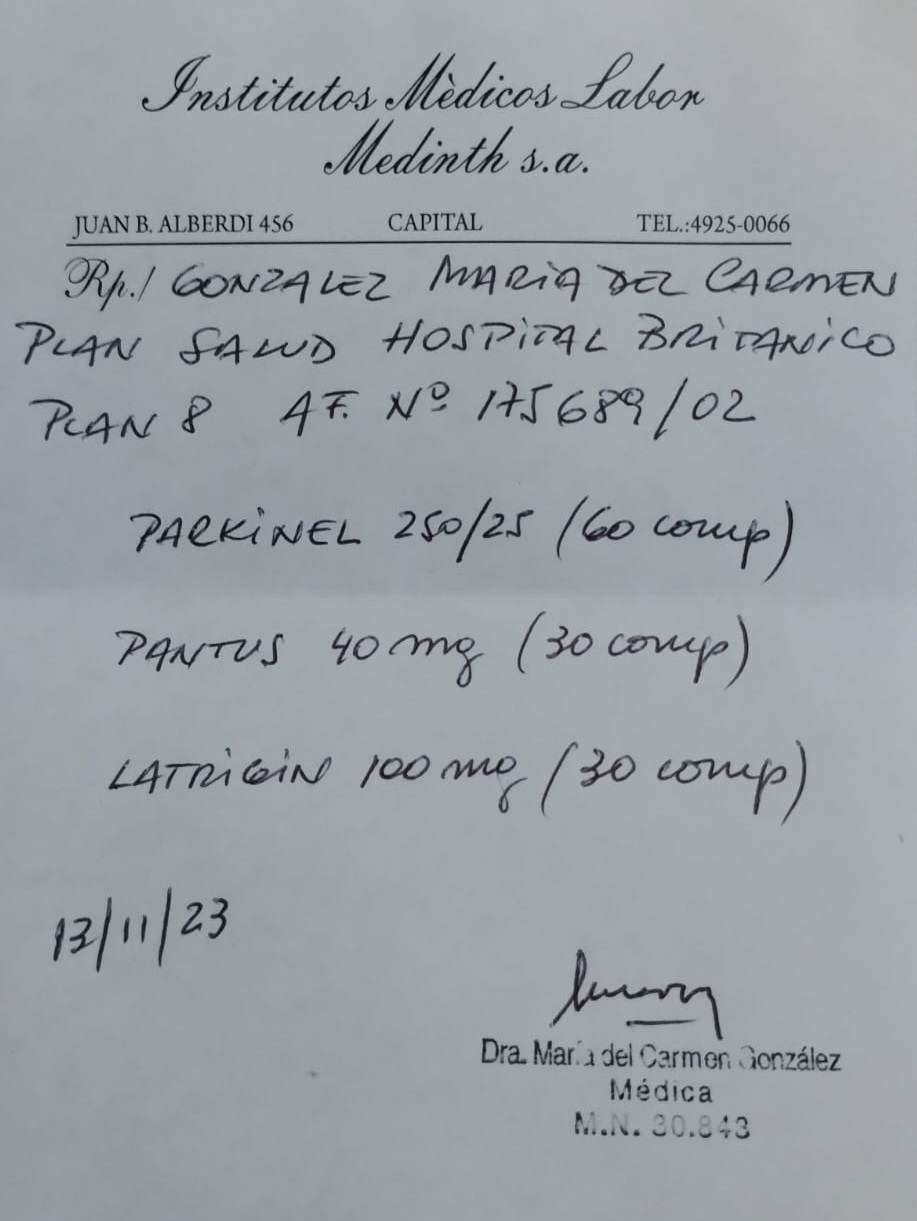 Institutos Mèdicos Labor
Medinth s.a.
JUAN B. ALBERDI 456 CAPITAL TEL.:4925-0066
Rp./ GONZALEZ MARIA DEL CARMEN
PLAN SALUD HOSPITAL BRITANICO
PLAN 8 AF. Nº 175689/02
PARKINEL 250/25 (60 comp)
PANTUS 40 mg (30 comp)
LATRIGIN 100 mg (30 comp)
13/11/23
Dra. María del Carmen González
Médica
M.N. 30.843